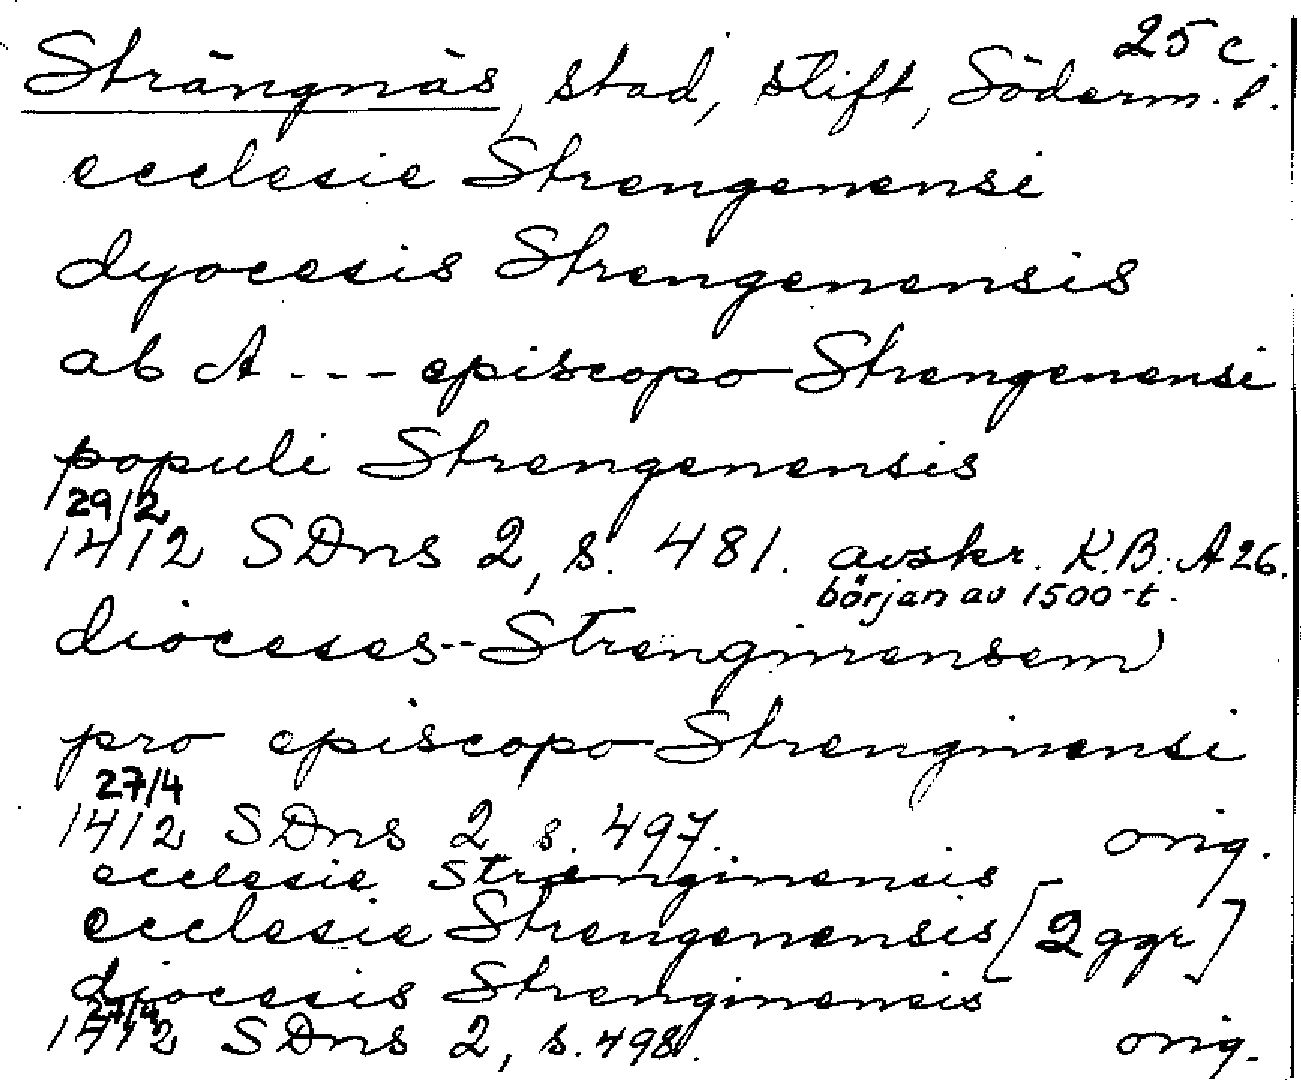 25 c.
Strängnäs, stad, stift, Söderm. l.
ecclesie Strengenensi
dyocesis Strengenensis
ab A --- episcopo Strengenensi
populi Strengenensis
29/2
1412 SDns 2, s. 481. avskr. K.B. A 26.
början av 1500-t.
dioceses -- Strenginensem
pro episcopo Strenginensi
27/4
1412 SDns 2 s. 497. orig.
ecclesie Strenginensis
ecclesie Strengenensis [2 ggr]
diocesis Strenginensis
27/4
1412 SDns 2, s. 498. orig.